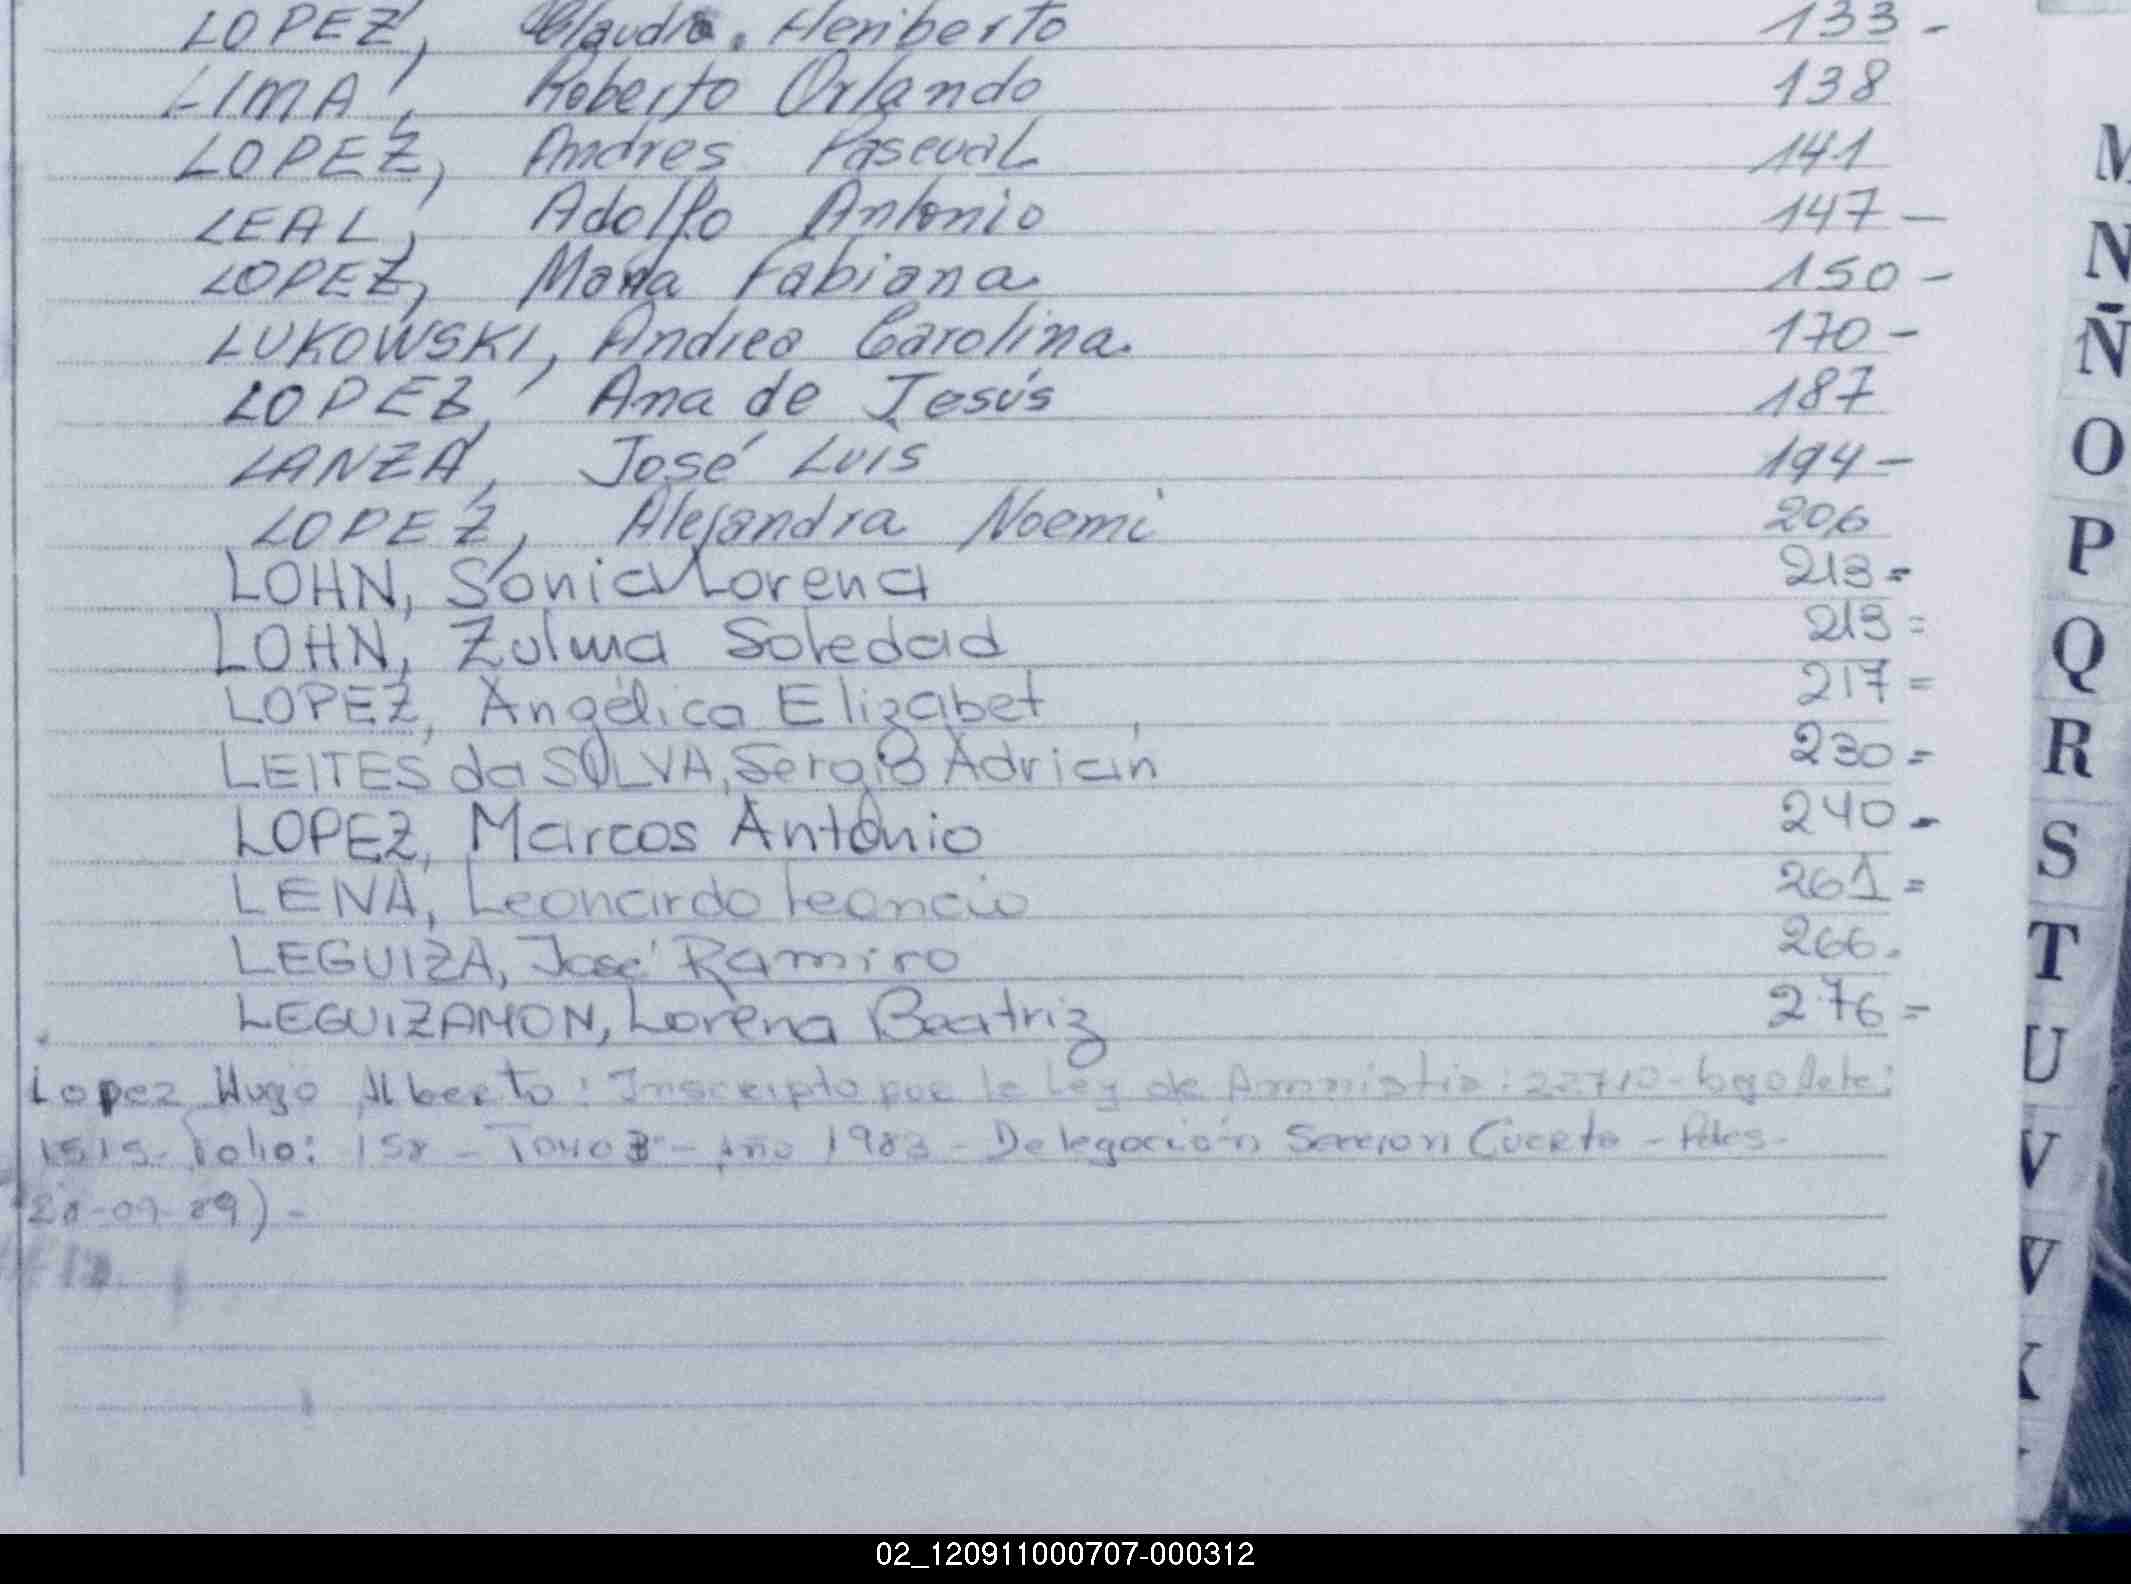 LOPEZ, Claudio Heriberto 133 -
LIMA, Roberto Orlando 138
LOPEZ, Andres Pascual 141
LEAL, Adolfo Antonio 147 -
LOPEZ, María Fabiana 150 -
LUKOWSKI, Andrea Carolina. 170 -
LOPEZ, Ana de Jesús 187
LANZA, José Luis 194 -
LOPEZ, Alejandra Noemi 206
LOHN, Sonia Lorena 213 =
LOHN, Zulma Soledad 213 =
LOPEZ, Angélica Elizabet 217 =
LEITES da SILVA, Sergio Adrián 230 =
LOPEZ, Marcos Antonio 240 -
LENA, Leonardo Leoncio 261 =
LEGUIZA, José Ramiro 266.
LEGUIZAMON, Lorena Beatriz 276 =
Lopez Hugo Alberto: Inscripto por la Ley de Amnistia: 22710-
1515- Folio: 158 - Tomo 3º - Año 1983 - Delegación Cuarta -
-09-89) -
M
N
Ñ
O
P
Q
R
S
T
U
V
02_120911000707-000312